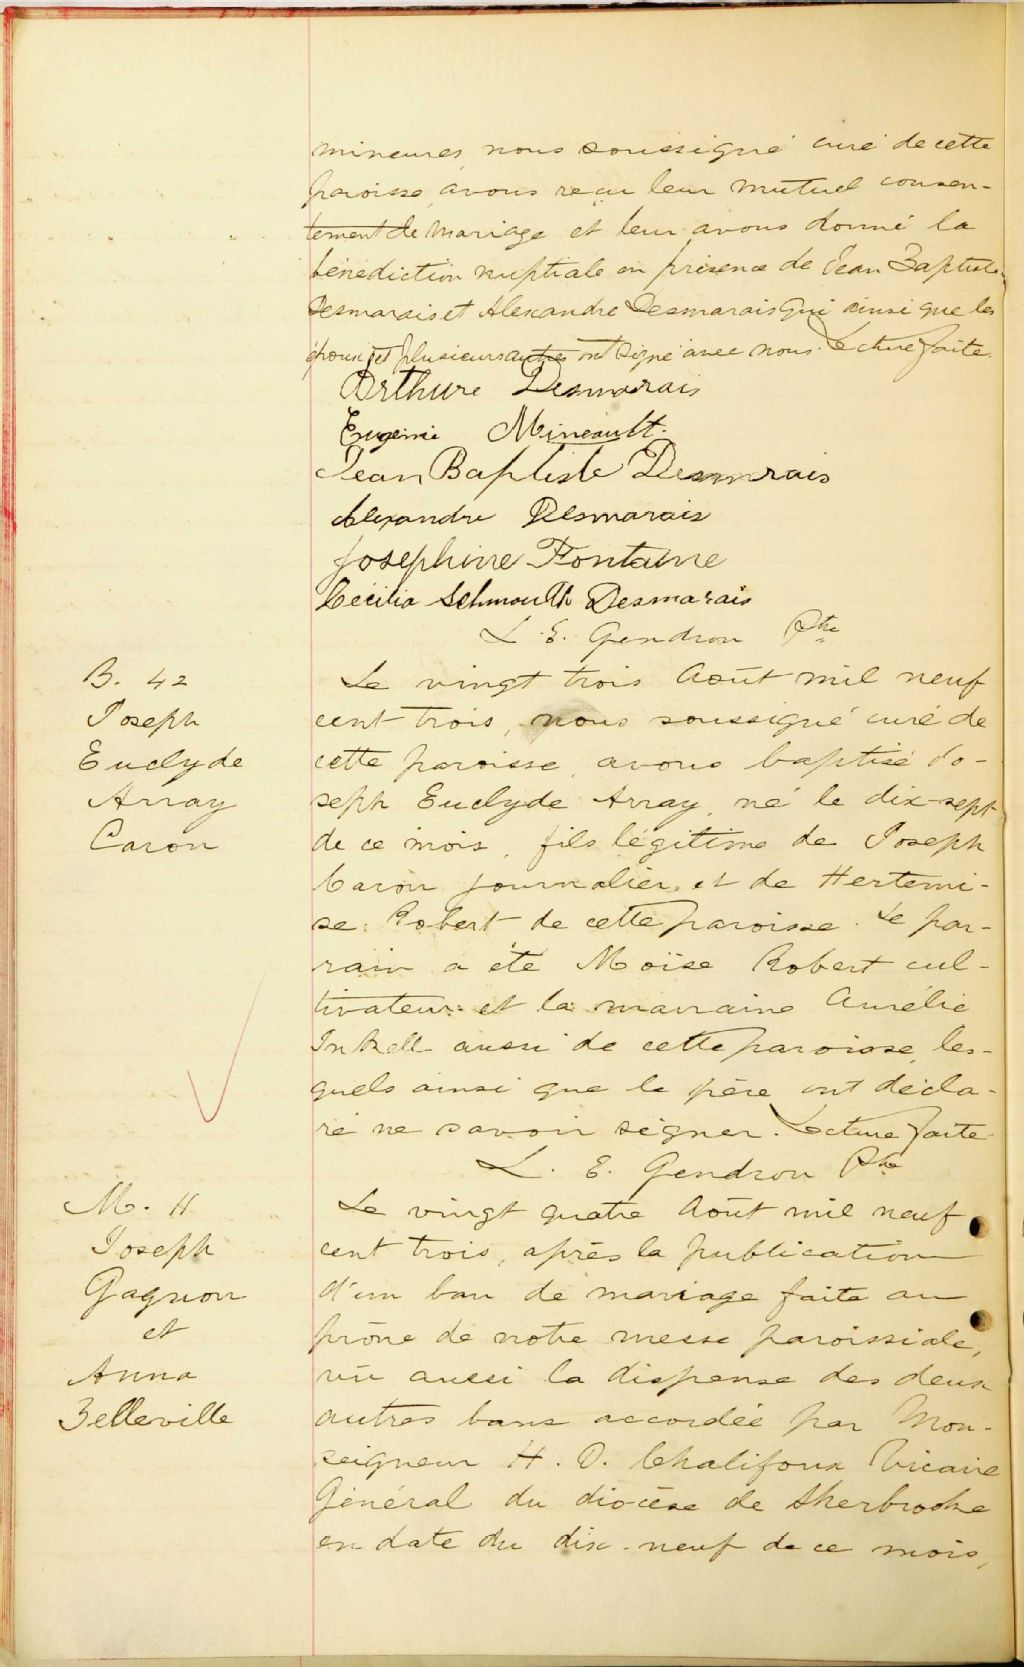 mineures, nous soussigné curé de cette
paroisse, avons reçu leur mutuel consen-
tement de mariage et leur avons donné la
bénédiction nuptiale en présence de Jean Baptiste
Desmarais et Alexandre Desmarais qui ainsi que les
époux et plusieurs autres ont signé avec nous. Lecture faite.
Arthure Desmarais
Eugénie Mineault.
Jean Baptiste Desmarais
Alexandre Desmarais
Josephine Fontaine
Cécilia Schmouth Desmarais
L. E. Gendron Ptre
B. 42
Joseph
Euclyde
Array
Caron
Le vingt trois Août mil neuf
cent trois, nous soussigné curé de
cette paroisse, avons baptisé Jo-
seph Euclyde Array, né le dix-sept
de ce mois, fils légitime de Joseph
Caron journalier, et de Hertemi-
se Robert de cette paroisse. Le par-
rain a été Moïse Robert cul-
tivateur et la marraine Aurélie
Inkell aussi de cette paroisse, les-
quels ainsi que le père ont décla-
ré ne savoir signer. Lecture faite.
L. E. Gendron Ptre
M. 11
Joseph
Gagnon
et
Anna
Belleville
Le vingt quatre Août mil neuf
cent trois, après la publication
d'un ban de mariage faite au
prône de notre messe paroissiale,
vu aussi la dispense des deux
autres bans accordée par Mon-
seigneur H. O. Chalifoux Vicaire
Général du diocèse de Sherbrooke
en date du dix-neuf de ce mois,